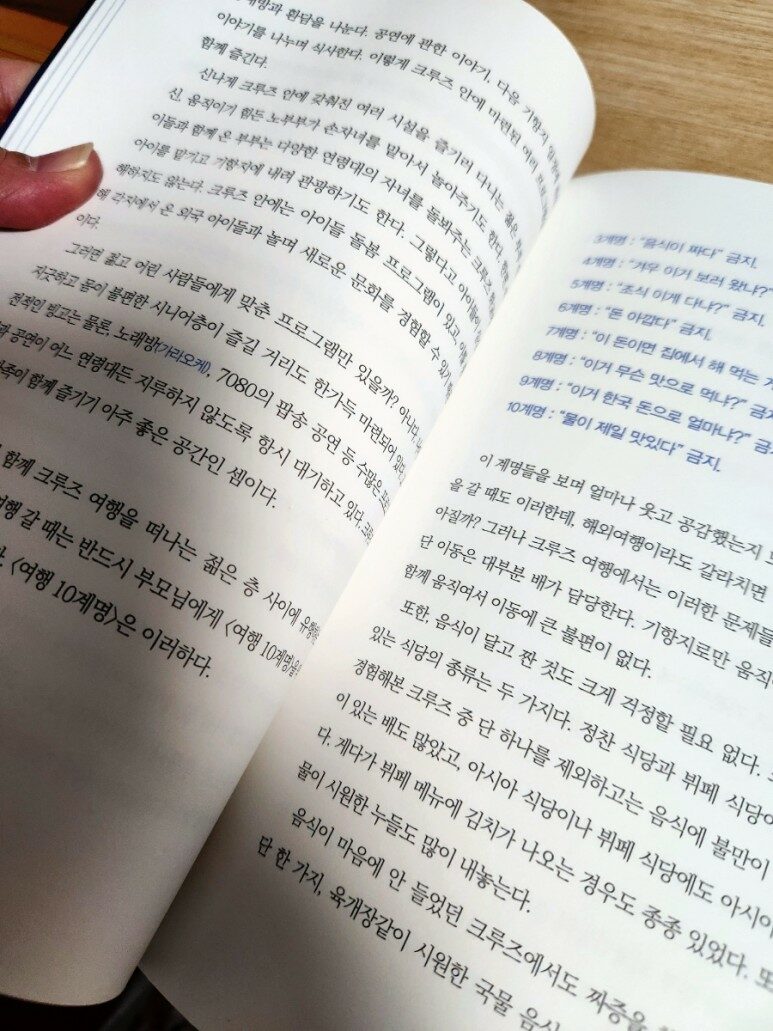 환담을 나눈다. 공연에 관한 이야기, 다음 기항지
이야기를 나누며 식사한다. 이렇게 크루즈 안에 마련된 여러
함께 즐긴다.
신나게 크루즈 안에 갖춰진 여러 시설을 즐기러 다니는 젊은
신, 움직이기 힘든 노부부가 손자녀를 맡아서 놀아주기도 한다.
이들과 함께 온 부부는 다양한 연령대의 자녀를 돌봐주는 크루즈
아이를 맡기고 기항지에 내려 관광하기도 한다. 그렇다고 아이들이
해하지도 않는다. 크루즈 안에는 아이들 돌봄 프로그램이 있고,
해 각지에서 온 외국 아이들과 놀며 새로운 문화를 경험할 수 있기
이다.
그러면 젊고 어린 사람들에게 맞춘 프로그램만 있을까? 아니다.
지긋하고 몸이 불편한 시니어층이 즐길 거리도 한가득 마련되어 있다.
전적인 빙고는 물론, 노래방(가라오케), 7080의 팝송 공연 등 수많은
공연이 어느 연령대든 지루하지 않도록 항시 대기하고 있다.
함께 즐기기 아주 좋은 공간인 셈이다.
함께 크루즈 여행을 떠나는 젊은 층 사이에
갈 때는 반드시 부모님에게 〈여행 10계명〉을
〈여행 10계명〉은 이러하다.
3계명 : “음식이 짜다” 금지.
4계명 : “겨우 이거 보러 왔냐?”
5계명 : “조식 이게 다냐?” 금지.
6계명 : “돈 아깝다” 금지.
7계명 : “이 돈이면 집에서 해 먹는
8계명 : “이거 무슨 맛으로 먹냐?”
9계명 : “이거 한국 돈으로 얼마냐?”
10계명 : “물이 제일 맛있다” 금지.
이 계명들을 보며 얼마나 웃고 공감했는지
을 갈 때도 이러한데, 해외여행이라도 갈라치면
아질까? 그러나 크루즈 여행에서는 이러한 문제들
단 이동은 대부분 배가 담당한다. 기항지로만
함께 움직여서 이동에 큰 불편이 없다.
또한, 음식이 달고 짠 것도 크게 걱정할 필요 없다.
있는 식당의 종류는 두 가지다. 정찬 식당과 뷔페 식당
경험해본 크루즈 중 단 하나를 제외하고는 음식에 불만이
이 있는 배도 많았고, 아시아 식당이나 뷔페 식당에도
다. 게다가 뷔페 메뉴에 김치가 나오는 경우도 종종 있었다.
물이 시원한 누들도 많이 내놓는다.
음식이 마음에 안 들었던 크루즈에서도 짜증을
단 한 가지, 육개장같이 시원한 국물